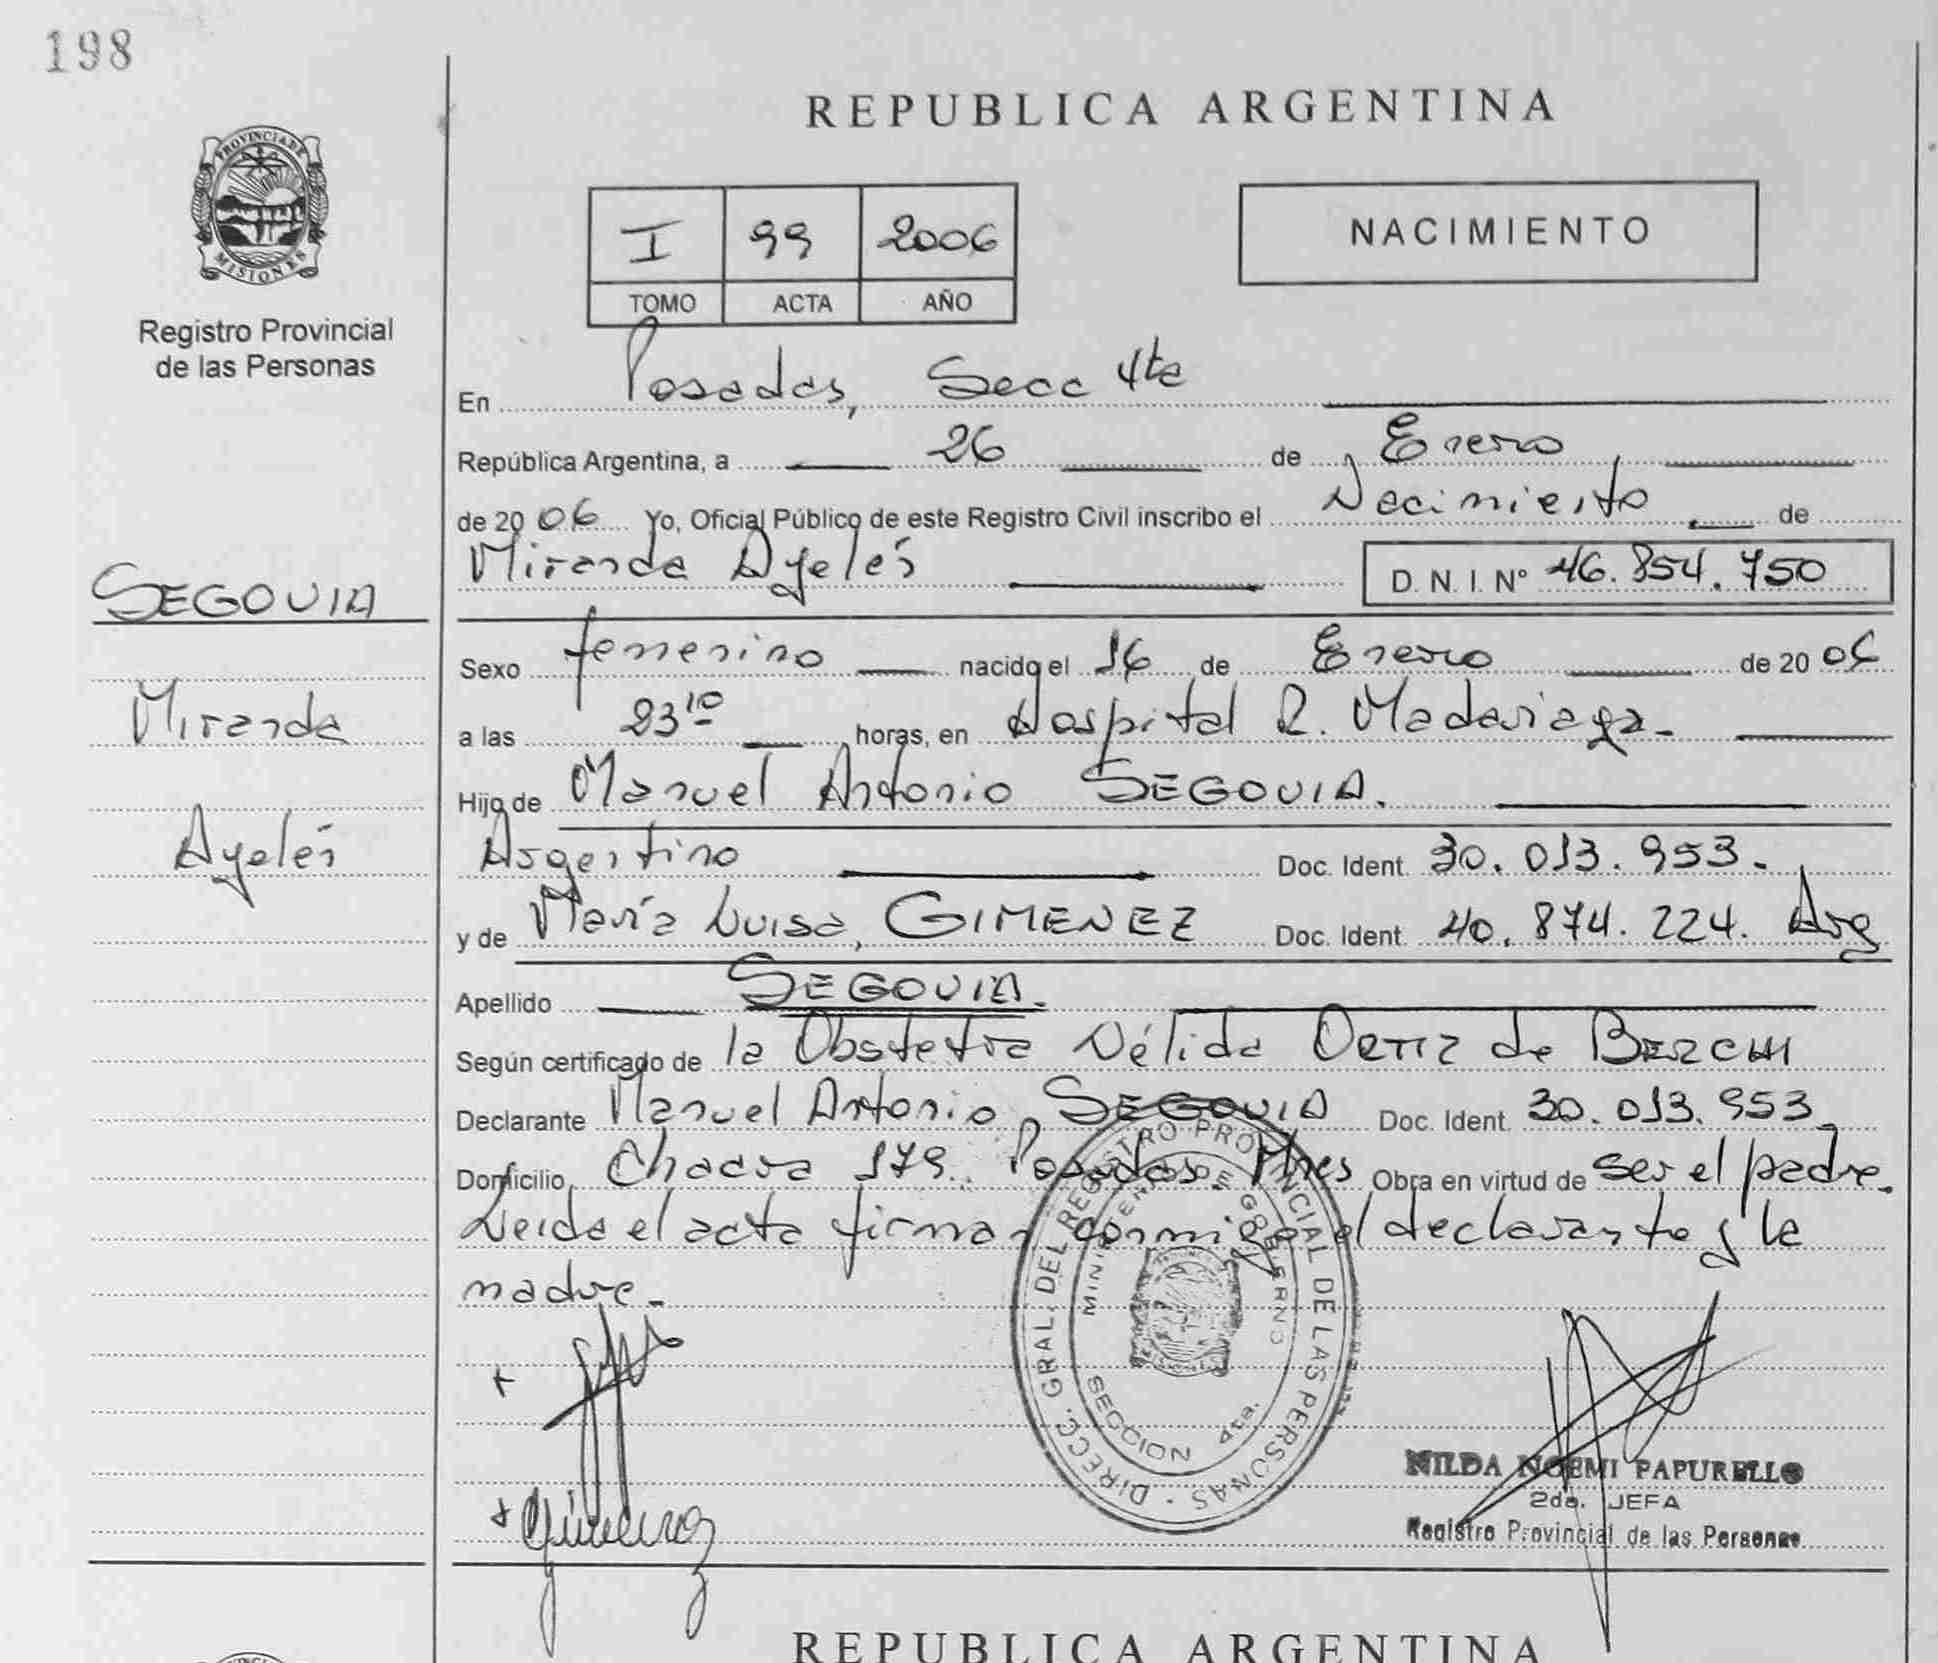 198
PROVINCIA DE
MISIONES
Registro Provincial
de las Personas
SEGOVIA
Miranda
Ayelén
REPUBLICA ARGENTINA
I 99 2006
TOMO ACTA AÑO
NACIMIENTO
En Posadas, Secc 4ta
República Argentina, a 26 de Enero
de 2006 Yo, Oficial Público de este Registro Civil inscribo el Nacimiento de
Miranda Ayelén D.N.I. Nº 46.854.750
Sexo femenino nacido el 16 de Enero de 2006
a las 23 10 horas, en Hospital R. Madariaga.
Hijo de Manuel Antonio SEGOVIA.
Argentino Doc. Ident. 30.013.953.
y de María Luisa, GIMENEZ Doc. Ident 40.874.224. Arg
Apellido SEGOVIA.
Según certificado de la Obstetra Nélida ORTIZ de
Declarante Manuel Antonio SEGOVIA Doc. Ident 30.013.953
Domicilio Chacra 179. Posadas, Mnes Obra en virtud de ser el padre.
Leida el acta firman conmigo el declarante y la
madre.
DIRECC. GRAL. DEL REGISTRO PROVINCIAL DE LAS PERSONAS
MINISTERIO DE GOBIERNO
SECCION 4ta.
Gimenez
NILDA NOEMI PAPURELLO
2da. JEFA
Registro Provincial de las Personas
REPUBLICA ARGENTINA